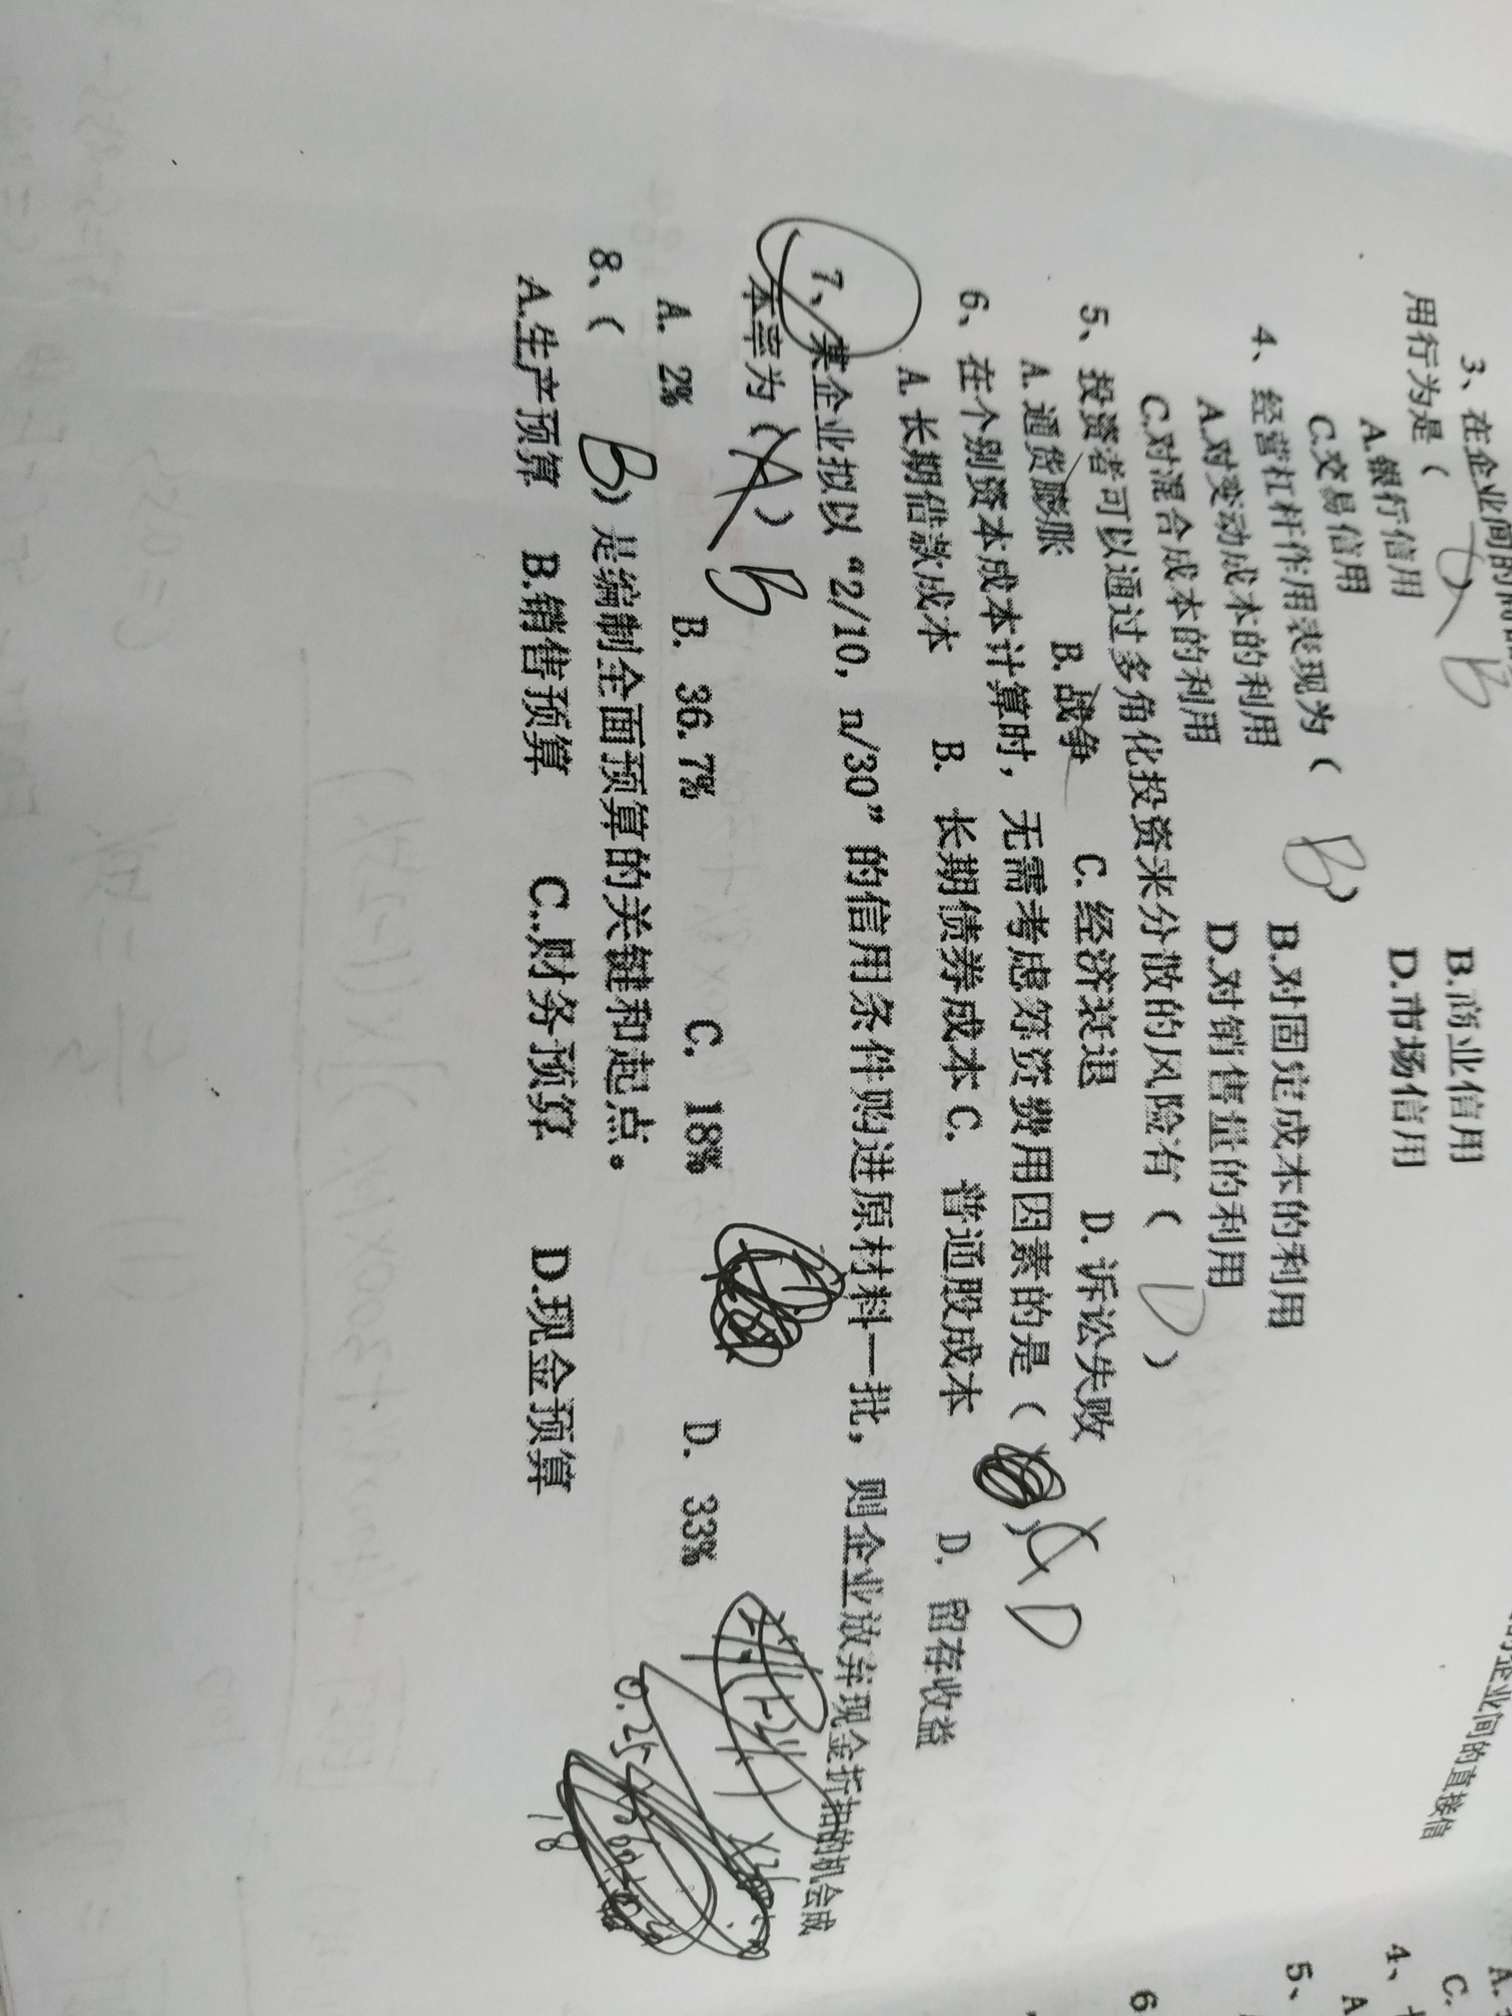 3、在企业间的商品
的企业间的直接信
用行为是( D B
A.银行信用 B.商业信用
C.交易信用 D.市场信用
4、经营杠杆作用表现为( B )
A.对变动成本的利用 B.对固定成本的利用
C.对混合成本的利用 D.对销售量的利用
5、投资者可以通过多角化投资来分散的风险有( D )
A.通货膨胀 B.战争 C.经济衰退 D.诉讼失败
6、在个别资本成本计算时,无需考虑筹资费用因素的是( ) D
A.长期借款成本 B. 长期债券成本 C. 普通股成本 D. 留存收益
7、某企业拟以“2/10, n/30”的信用条件购进原材料一批,则企业放弃现金折扣的机会成
本率为(A) B
A. 2% B. 36.7% C. 18% D. 33%
8、( B )是编制全面预算的关键和起点。
A.生产预算 B.销售预算 C..财务预算 D.现金预算
18
A.
C.
4、
A
5、
6